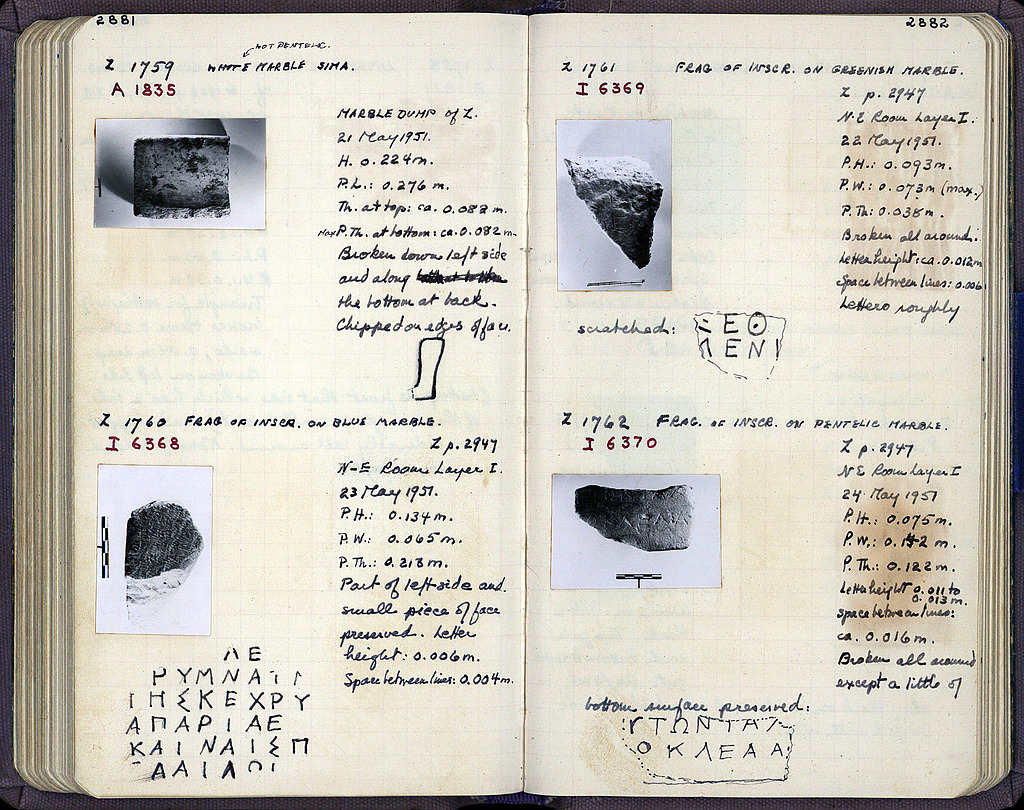 2881
NOT PENTELIC.
Z 1759 WHITE MARBLE SIMA.
A 1835
MARBLE DUMP of Z.
21 May 1951.
H. 0.224 m.
P.L.: 0.276 m.
Th. at top: ca. 0.088 m.
Max P.Th. at bottom: ca. 0.082 m.
Broken down left side
and along
the bottom at back.
Chipped on edges of face.
Z 1760 FRAG OF INSCR. ON BLUE MARBLE.
I 6368
Z p. 2947
N-E Room Layer I.
23 May 1951.
P.H.: 0.134 m.
P.W.: 0.065 m.
P.Th.: 0.218 m.
Part of left side and
small piece of face
preserved. Letter
height: 0.006 m.
Space between lines: 0.004 m.
ΛΕ
ΡΥΜΝΑΤΙ
ΙΗΣΚΕΧΡΥ
ΑΠΑΡΙΑΕ
ΚΑΙΝΑΙΣΠ
ΑΑΙΛΟΙ
2882
Z 1761 FRAG OF INSCR. ON GREENISH MARBLE.
I 6369
Z p. 2947
N-E Room Layer I.
22 May 1951.
P.H.: 0.093 m.
P.W.: 0.073 m (max.)
P.Th: 0.038 m.
Broken all around.
Letter height: ca. 0.012 m
Space between lines: 0.006
Letters roughly
scratched:
ΞΕΘ
ΛΕΝΙ
Z 1762 FRAG. OF INSCR. ON PENTELIC MARBLE.
I 6370
Z p. 2947
N-E Room Layer I
24 May 1951
P.H.: 0.075 m.
P.W.: 0.142 m.
P.Th.: 0.122 m.
Letter height 0.011 to
0.013 m.
space between lines:
ca. 0.016 m.
Broken all around
except a little of
bottom surface preserved:
ΥΤΩΝΤΑΛ
ΟΚΛΕΑΑ